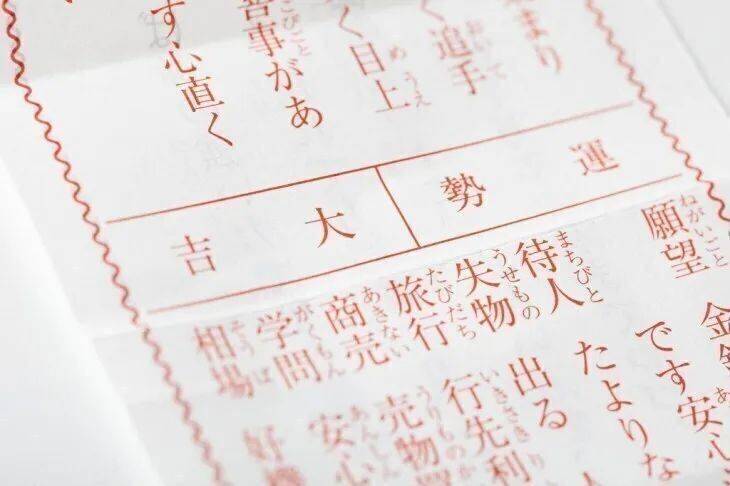 まり
く追手 おいて
く目上 めうえ
喜事があ こびごと
す心直く
運勢
大吉
願望 ねがいごと
待人 まちびと
失物 うせもの
旅行 たびだち
商売 あきない
学問 がくもん
相場 そうば
金
です安心
たよりな
出る
行先利 いきさき り
売物 うりもの
安心 あんしん
好